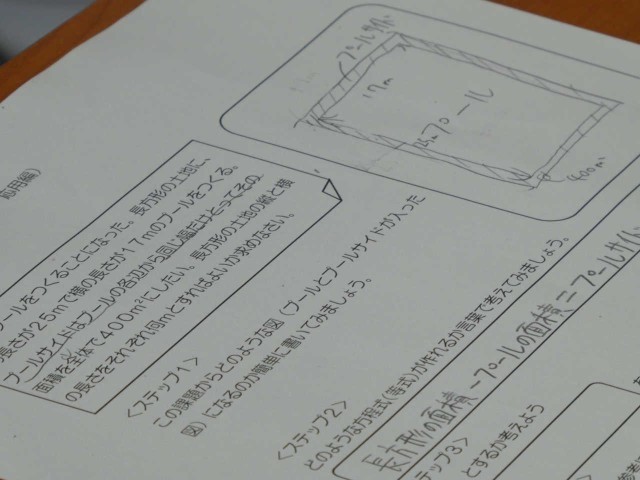 応用編)
プールをつくることになった。長方形の土地に、
の長さが25mで横の長さが17mのプールをつくる。
プールサイドはプールの各辺から同じ幅だけとってその
面積を全体で400m²にしたい。長方形の土地の縦と横
の長さをそれぞれ何mとすればよいか求めなさい。
<ステップ1>
この課題からどのような図(プールとプールサイドが入った
図)になるのか簡単に書いてみましょう。
プールサイド
17m
25m
プール
400m²
<ステップ2>
どのような方程式(等式)が作れるか言葉で考えてみましょう。
長方形の面積-プールの面積=プールサイド
テップ3>
とするか考えよう